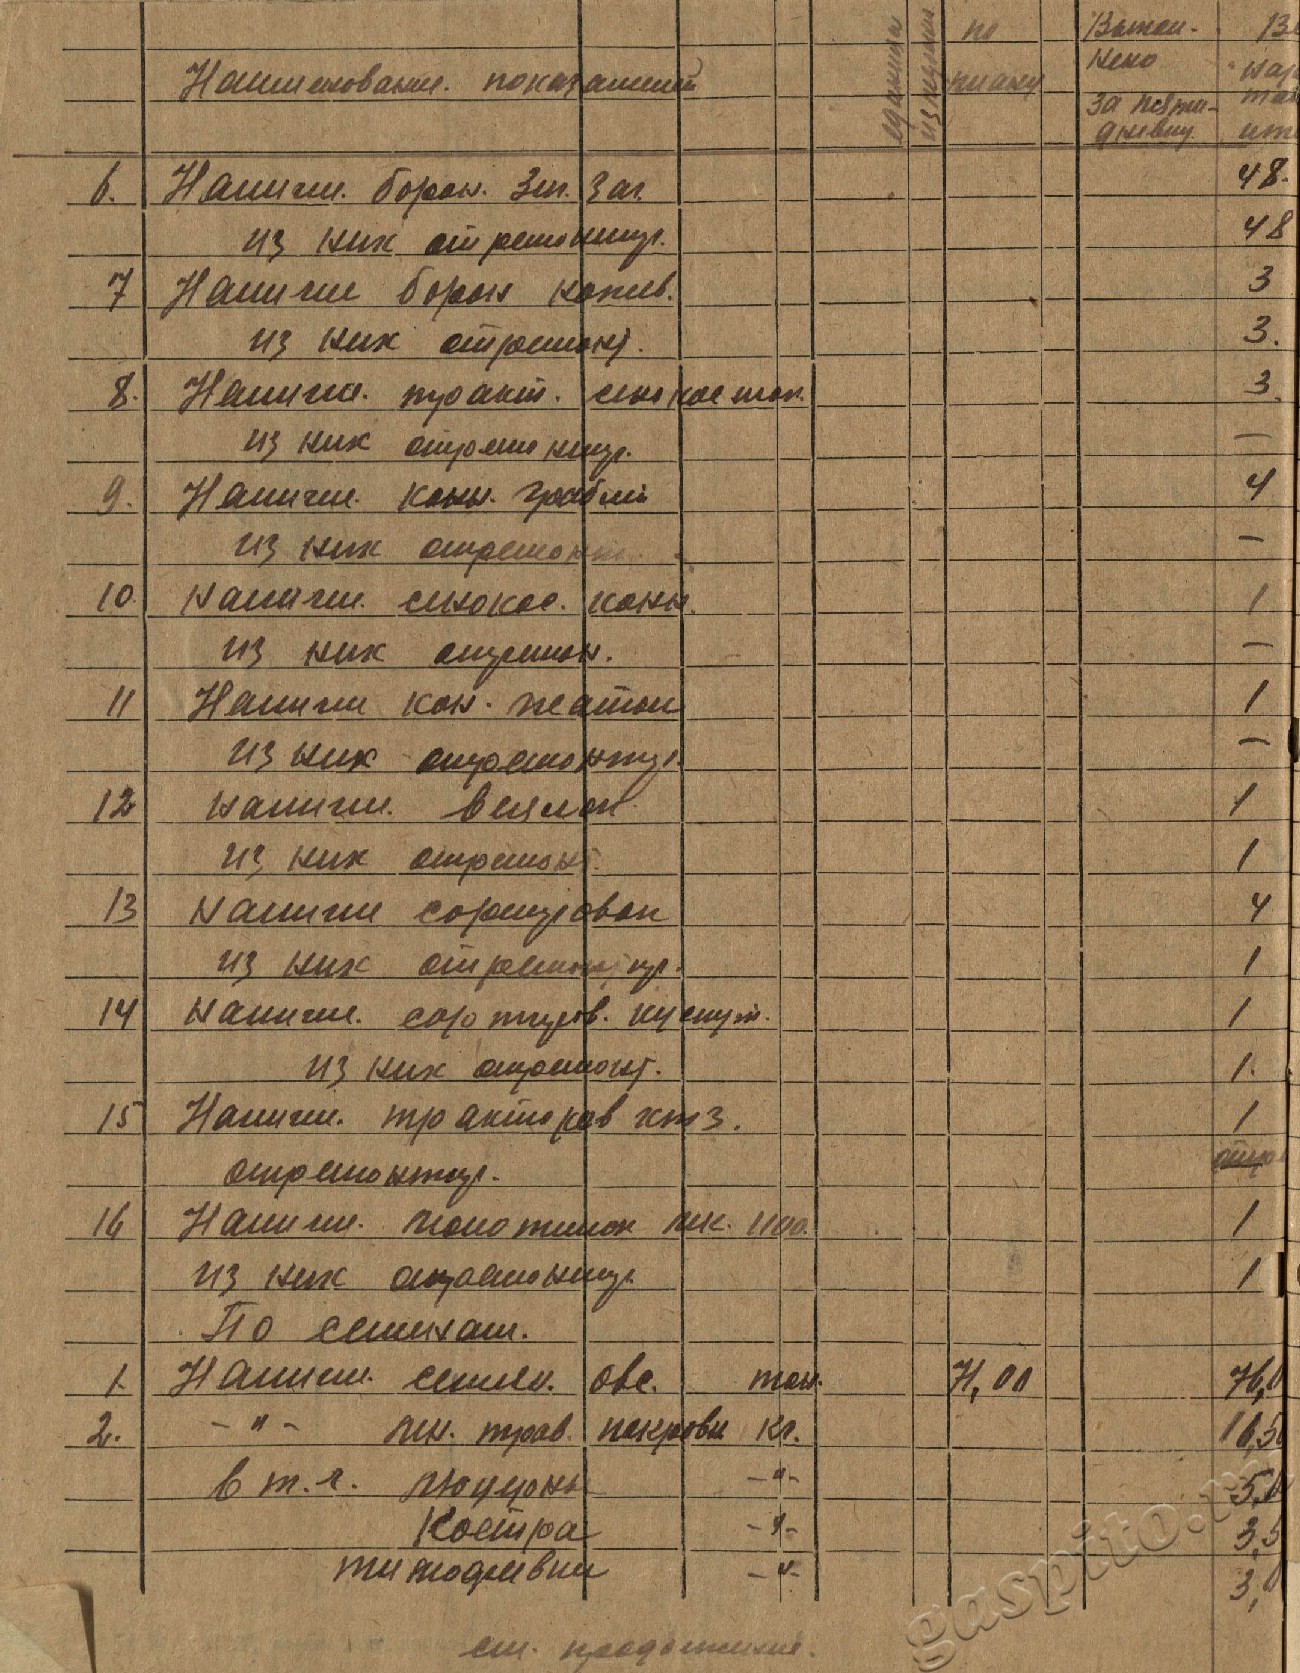 Наименован. показателей единица измерения по плану Выпол- нено за пятидневку
6. Наличи. борон. Зиг. Заг. 48.
из них отремонтир. 48
7 Наличи борон 3
из них отремонт. 3.
8. Наличи. тракт. сенокосил. 3.
из них отремонтир. —
9. Наличи. конн. граблей 4
из них отремонт. —
10 Наличи. сенокос. конн. 1
из них отремон. —
11 Наличи кон. жаток 1
из них отремонтир. —
12 Наличи. веялок 1
из них отремонт. 1
13 Наличи сортировок 4
из них отремонтир. 1
14 Наличи. сортиров. 1
из них отремонт. 1.
15 Наличи. тракторов хтз. 1
отремонтир.
16 Наличи. молотилок 1
из них отремонтир. 1
По семенам.
1. Наличи. семен. овс. тон. 71,00 76,0
2. -"- мн. трав. покровн кг. 16,50
в т.г. люцерны -"- 5,0
Костра -"- 3,5
тимофеевки -"- 3,0
см. продолжение.
gaspito.ru